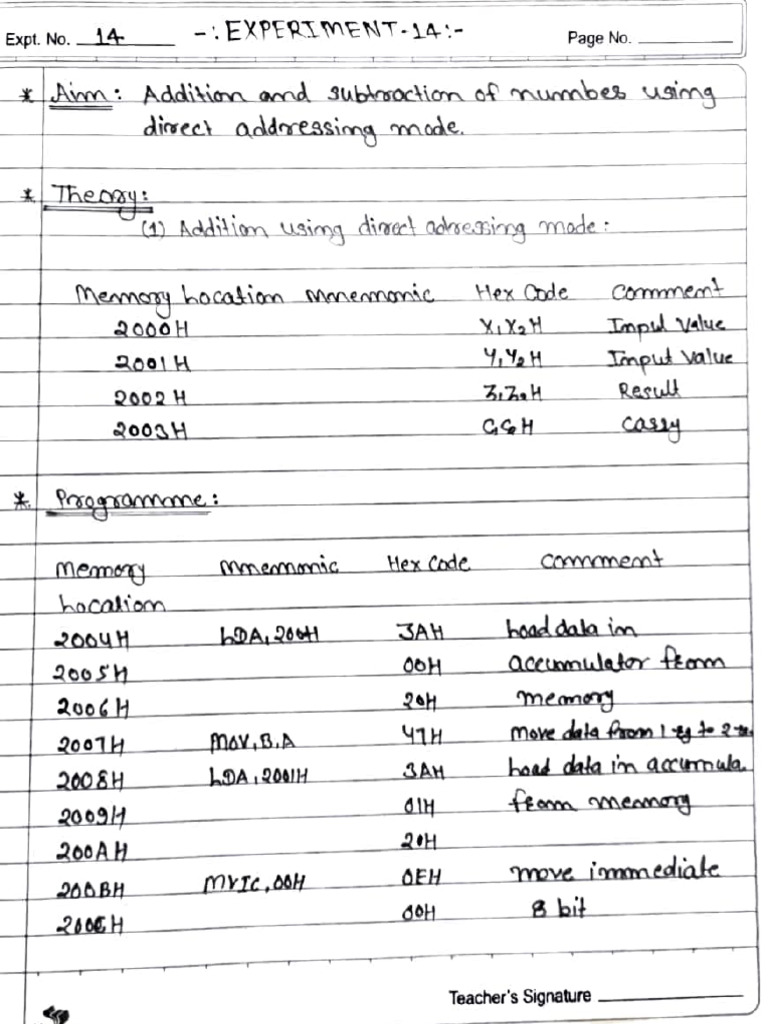 Expt. No. 14 -: EXPERIMENT-14:- Page No.
* Aim: Addition and subtraction of numbes using
direct addressing mode.
* Theory:
(1) Addition using direct adressing mode:
Memory Location Mnemonic Hex Code Comment
2000H X1X2H Input Value
2001H Y1Y2H Input Value
2002H Z1Z2H Result
2003H C1C2H Carry
* Programme:
Memory Mnemonic Hex Code Comment
Location
2004H LDA, 200H 3AH Load data in
2005H 00H accumulator from
2006H 20H memory
2007H MOV, B, A 47H Move data from 1 to 2
2008H LDA, 2001H 3AH Load data in accumula
2009H 01H from memory
200AH 20H
200BH MVIC, 00H 0EH Move immediate
200CH 00H 8 bit
Teacher's Signature